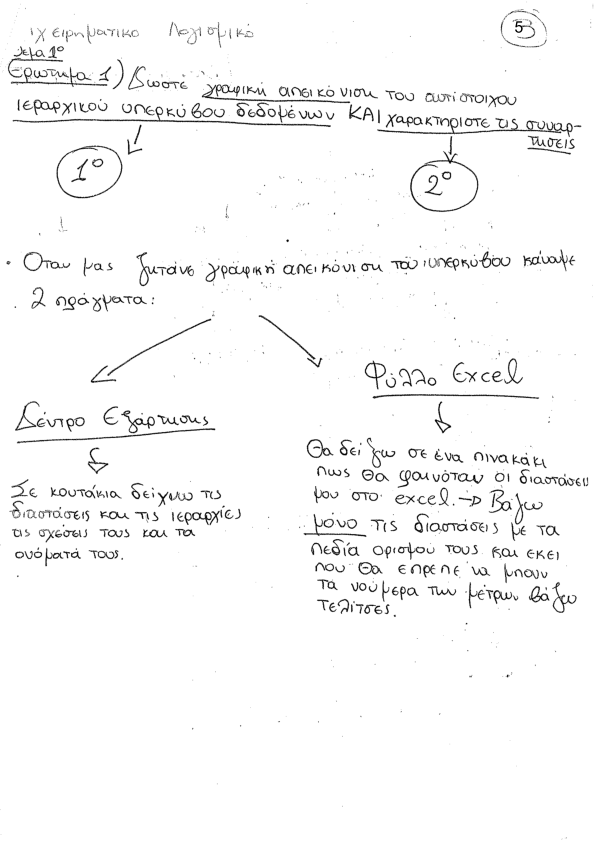 ιχειρηματικο Λογισμικό
5B
θεμα 1º
Ερωτημα 1) Δώστε γραφική απεικόνιση του αντίστοιχου
ιεραρχικού υπερκύβου δεδομένων ΚΑΙ χαρακτηρίστε τις συναρ-
τήσεις
1º
2º
• Όταν μας ζητάνε γραφική απεικόνιση του υπερκύβου κάνουμε
2 πράγματα:
Δέντρο Εξάρτησης
Σε κουτάκια δείχνω τις
διαστάσεις και τις ιεραρχίες
τις σχέσεις τους και τα
ονόματά τους.
Φύλλο Excel
Θα δείξω σε ένα πινακάκι
πως θα φαινόταν οι διαστάσεις
μου στο excel. → Βάζω
μόνο τις διαστάσεις με τα
πεδία ορισμού τους και εκεί
που θα έπρεπε να μπουν
τα νούμερα των μέτρων βάζω
τελίτσες.